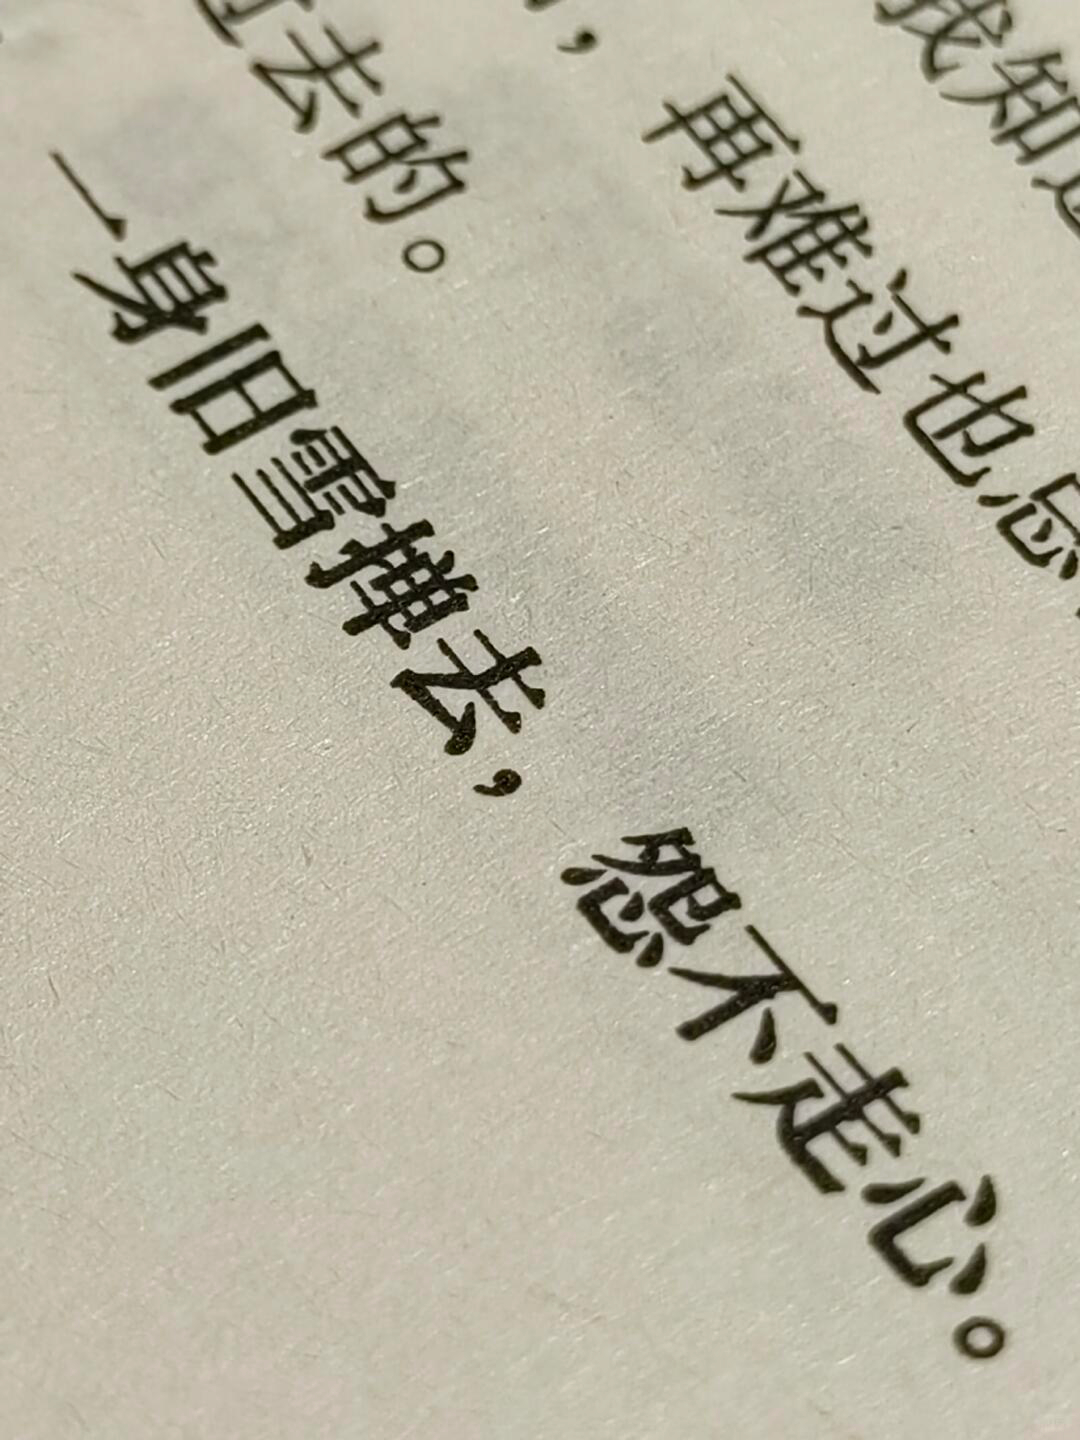 我知道
，再难过也总
过去的。
一身旧雪掸去，怨不走心。